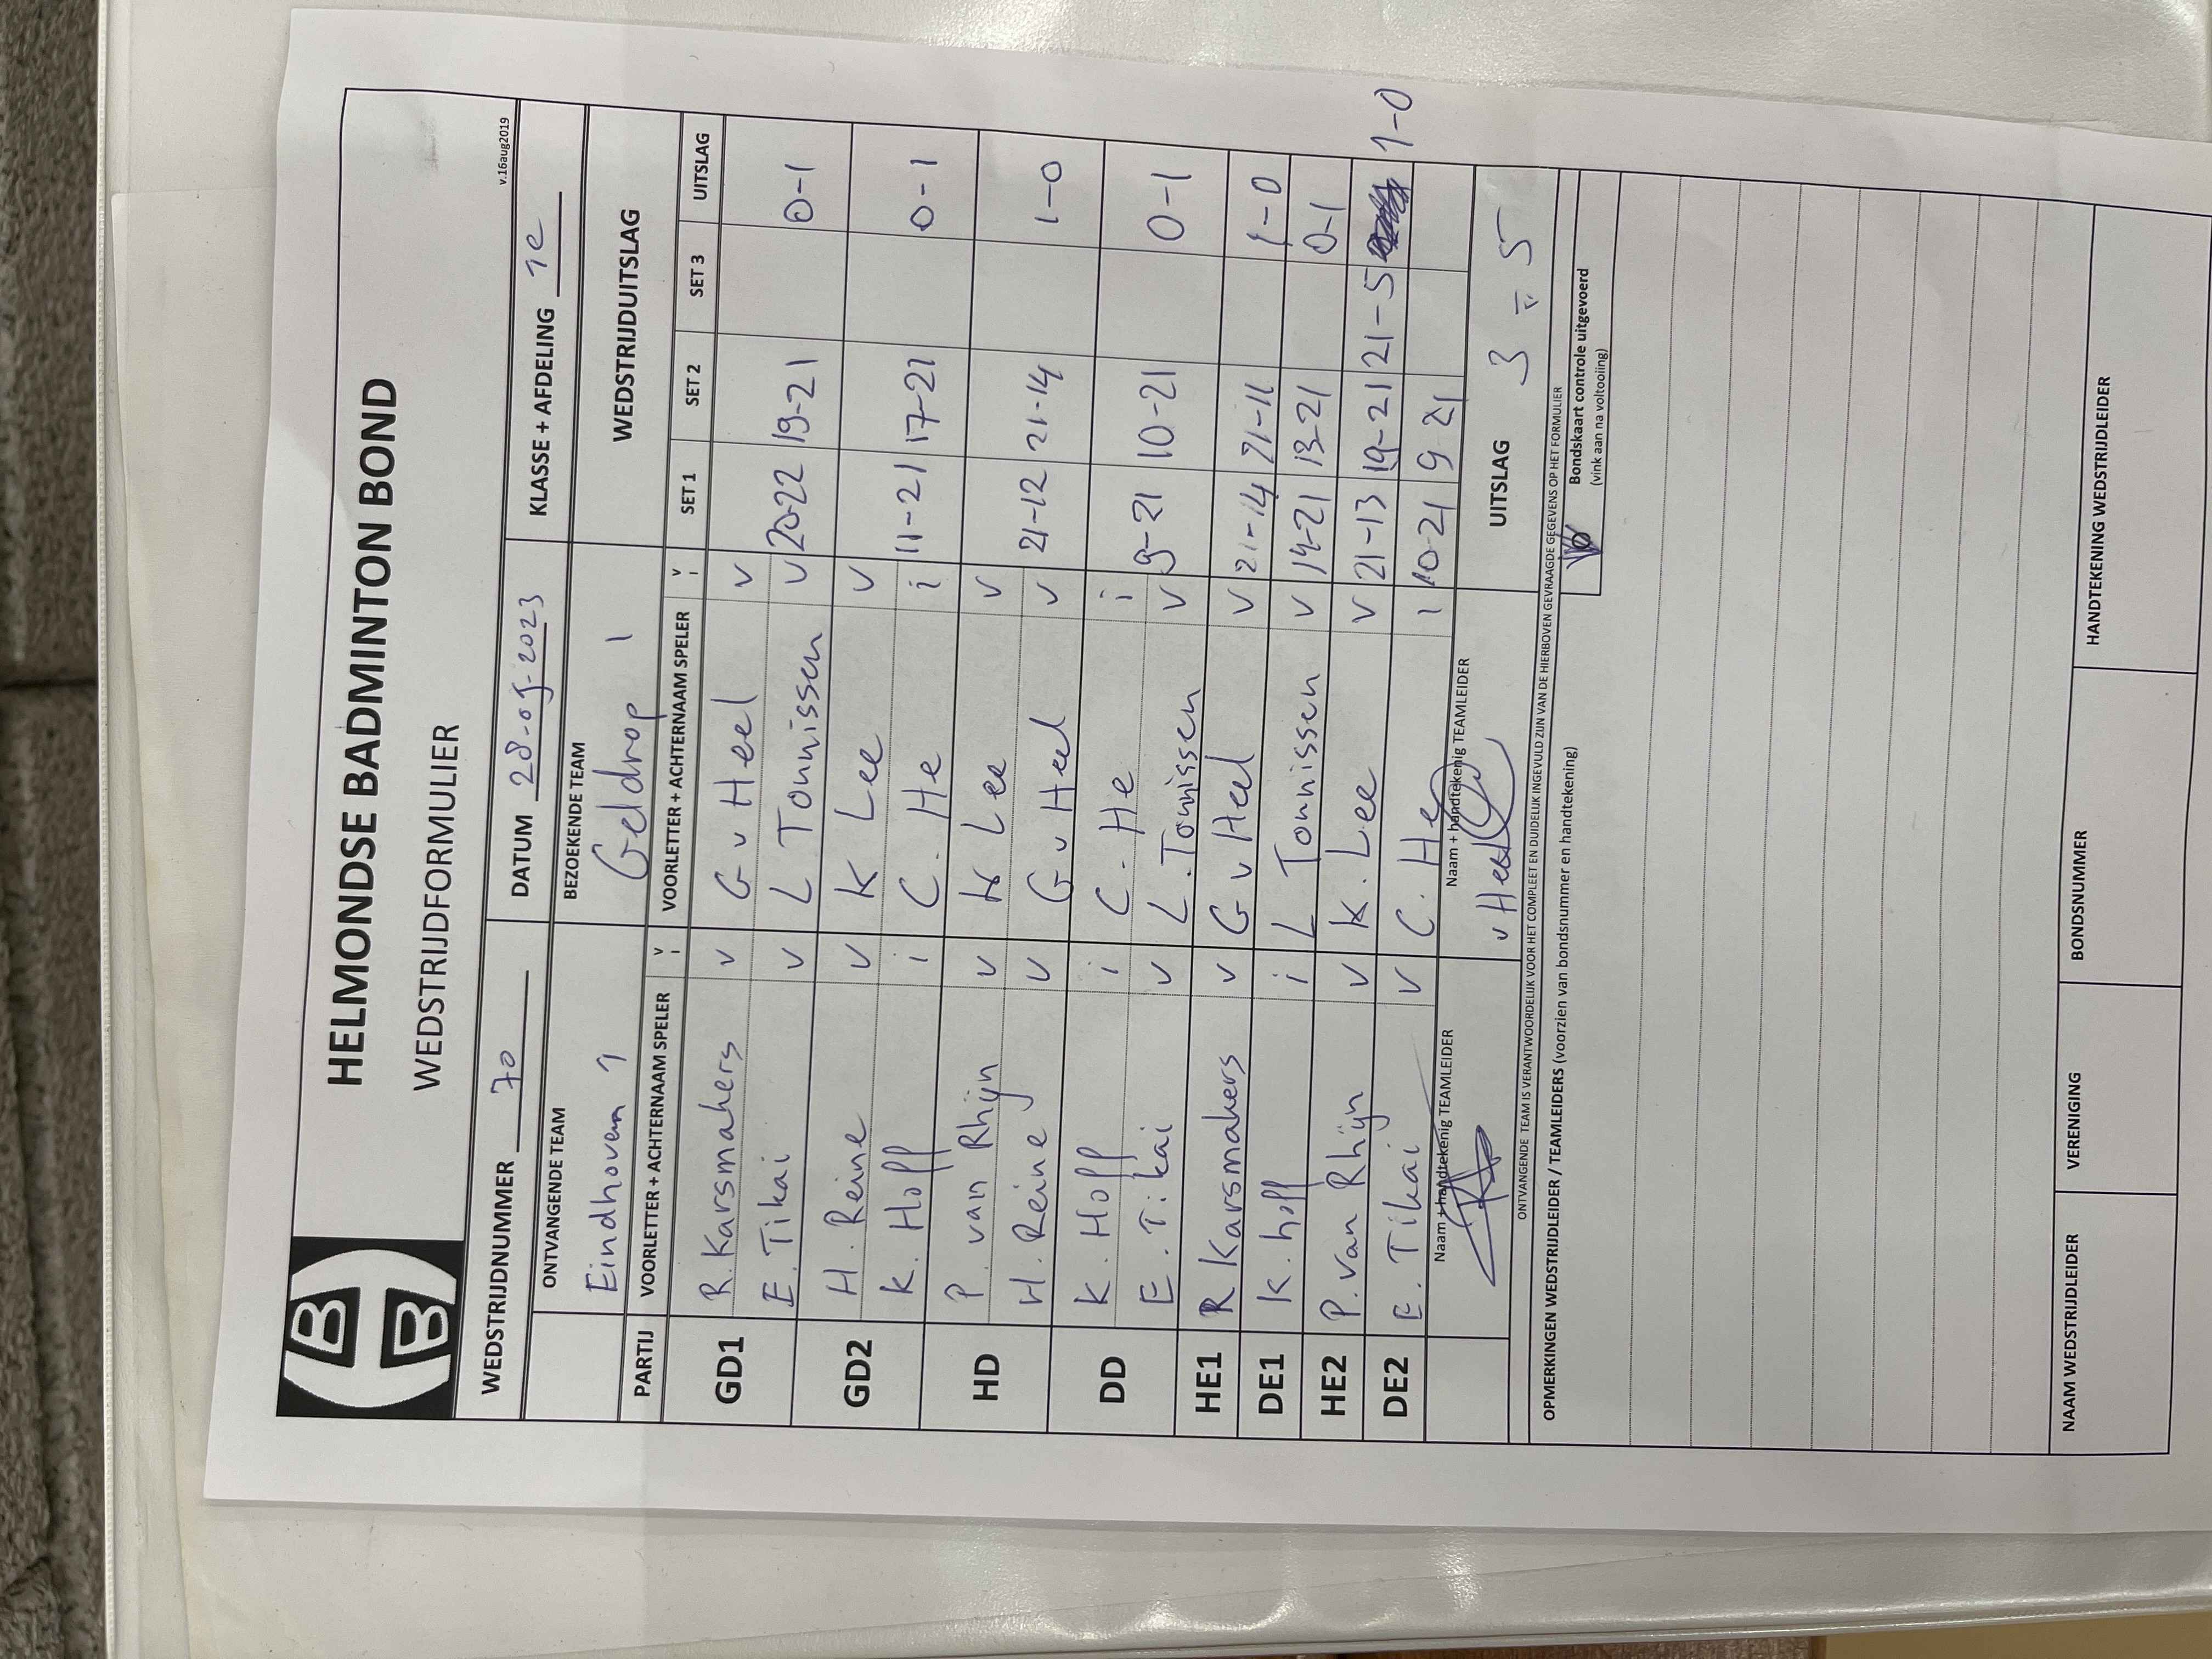 HELMONDSE BADMINTON BOND
WEDSTRIJDFORMULIER
v.16aug2019
WEDSTRIJDNUMMER 70 DATUM 28-09-2023 KLASSE + AFDELING 1e
ONTVANGENDE TEAM BEZOEKENDE TEAM WEDSTRIJDUITSLAG
Eindhoven 1 Geldrop 1
PARTIJ VOORLETTER + ACHTERNAAM SPELER V I VOORLETTER + ACHTERNAAM SPELER V I SET 1 SET 2 SET 3 UITSLAG
GD1 R. Karsmakers v G v Heel v
E. Tikai v L Tonnissen v 20-22 19-21 0-1
GD2 H. Reine v K Lee v
K. Hoff i C. He i 11-21 17-21 0-1
HD P. van Rhijn v K Lee v
H. Reine v G v Heel v 21-12 21-14 1-0
DD K. Hoff i C. He i
E. Tikai v L. Tonissen v 9-21 10-21 0-1
HE1 R Karsmakers v G v Heel v 21-14 21-11 1-0
DE1 K. hoff i L Tonnissen v 14-21 13-21 0-1
HE2 P. van Rhijn v K. Lee v 21-13 19-21 21-5 1-0
DE2 E. Tikai v C. He i 10-21 9-21
Naam + handtekenig TEAMLEIDER Naam + handtekenig TEAMLEIDER UITSLAG 3 - 5
v Heel
ONTVANGENDE TEAM IS VERANTWOORDELIJK VOOR HET COMPLEET EN DUIDELIJK INGEVULD ZIJN VAN DE HIERBOVEN GEVRAAGDE GEGEVENS OP HET FORMULIER
OPMERKINGEN WEDSTRIJDLEIDER / TEAMLEIDERS (voorzien van bondsnummer en handtekening)
Bondskaart controle uitgevoerd
(vink aan na voltooiing)
NAAM WEDSTRIJDLEIDER VERENIGING BONDSNUMMER HANDTEKENING WEDSTRIJDLEIDER